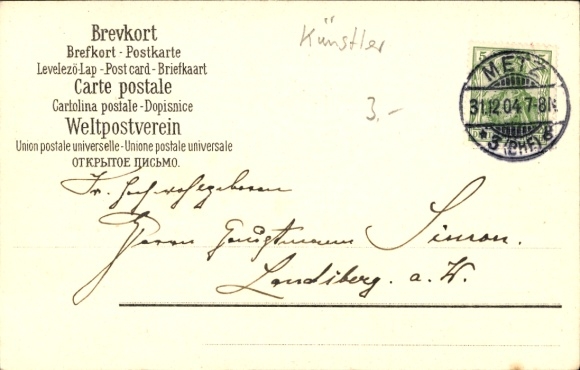 Brevkort
Brefkort - Postkarte
Levelező-Lap - Post card - Briefkaart
Carte postale
Cartolina postale - Dopisnice
Weltpostverein
Union postale universelle - Unione postale universale
ОТКРЫТОЕ ПИСЬМО.
Künstler
3.-
5 5
METZ
31.12.04 7-8N.
* 3 (BHF) B
Sr. Hochwohlgeboren
Herrn Hauptmann Simon.
Landsberg. a. W.